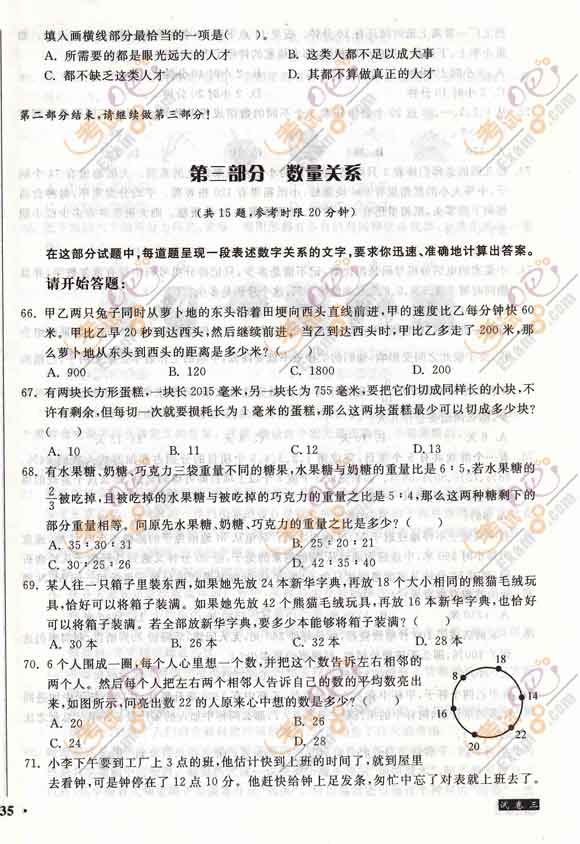 填入画横线部分最恰当的一项是(    )。
A. 所需要的都是眼光远大的人才    B. 这类人都不足以成大事
C. 都不缺乏这类人才    D. 其都不算做真正的人才
第二部分结束,请继续做第三部分!
第三部分  数量关系
(共15题,参考时限20分钟)
在这部分试题中,每道题呈现一段表述数字关系的文字,要求你迅速、准确地计算出答案。
请开始答题:
66. 甲乙两只兔子同时从萝卜地的东头沿着田埂向西头直线前进,甲的速度比乙每分钟快60
米,甲比乙早20秒到达西头,然后继续前进。当乙到达西头时,甲比乙多走了200米,那
么萝卜地从东头到西头的距离是多少米?(    )
A. 900    B. 120    C. 1800    D. 200
67. 有两块长方形蛋糕,一块长2015毫米,另一块长为755毫米,要把它们切成同样长的小块,不
许有剩余,但每切一次就要损耗长为1毫米的蛋糕,那么这两块蛋糕最少可以切成多少块?
(    )
A. 10    B. 11    C. 12    D. 13
68. 有水果糖、奶糖、巧克力三袋重量不同的糖果,水果糖与奶糖的重量比是6∶5,若水果糖的
2/3被吃掉,且被吃掉的水果糖与被吃掉的巧克力的重量之比是5∶4,那么这两种糖剩下的
部分重量相等。问原先水果糖、奶糖、巧克力的重量之比是多少?(    )
A. 35∶30∶31    B. 25∶20∶21
C. 30∶25∶26    D. 42∶35∶40
69. 某人往一只箱子里装东西,如果她先放24本新华字典,再放18个大小相同的熊猫毛绒玩
具,恰好可以将箱子装满。如果先放42个熊猫毛绒玩具,再放16本新华字典,也恰好
可以将箱子装满。若全部放新华字典,要多少本能够将箱子装满?(    )
A. 30本    B. 26本    C. 32本    D. 28本
70. 6个人围成一圈,每个人心里想一个数,并把这个数告诉左右相邻的
两个人。然后每个人把左右两个相邻人告诉自己的数的平均数亮出
来,如图所示,问亮出数22的人原来心中想的数是多少?(    )
A. 20    B. 26
C. 24    D. 28
18
8
14
16
22
20
71. 小李下午要到工厂上3点的班,他估计快到上班的时间了,就到屋里
去看钟,可是钟停在了12点10分。他赶快给钟上足发条,匆忙中忘了对表就上班去了。
35
试卷三